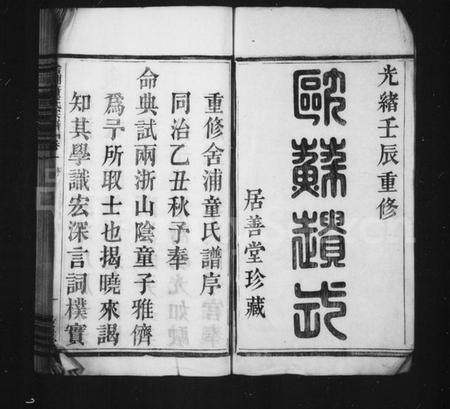 光緒壬辰重修
歐蘇趕武
居善堂珍藏
重修舍浦童氏譜序
同治乙丑秋予奉
命典試兩浙山陰童子雅儕
爲予所取士也揭曉來謁
知其學識宏深言詞樸實